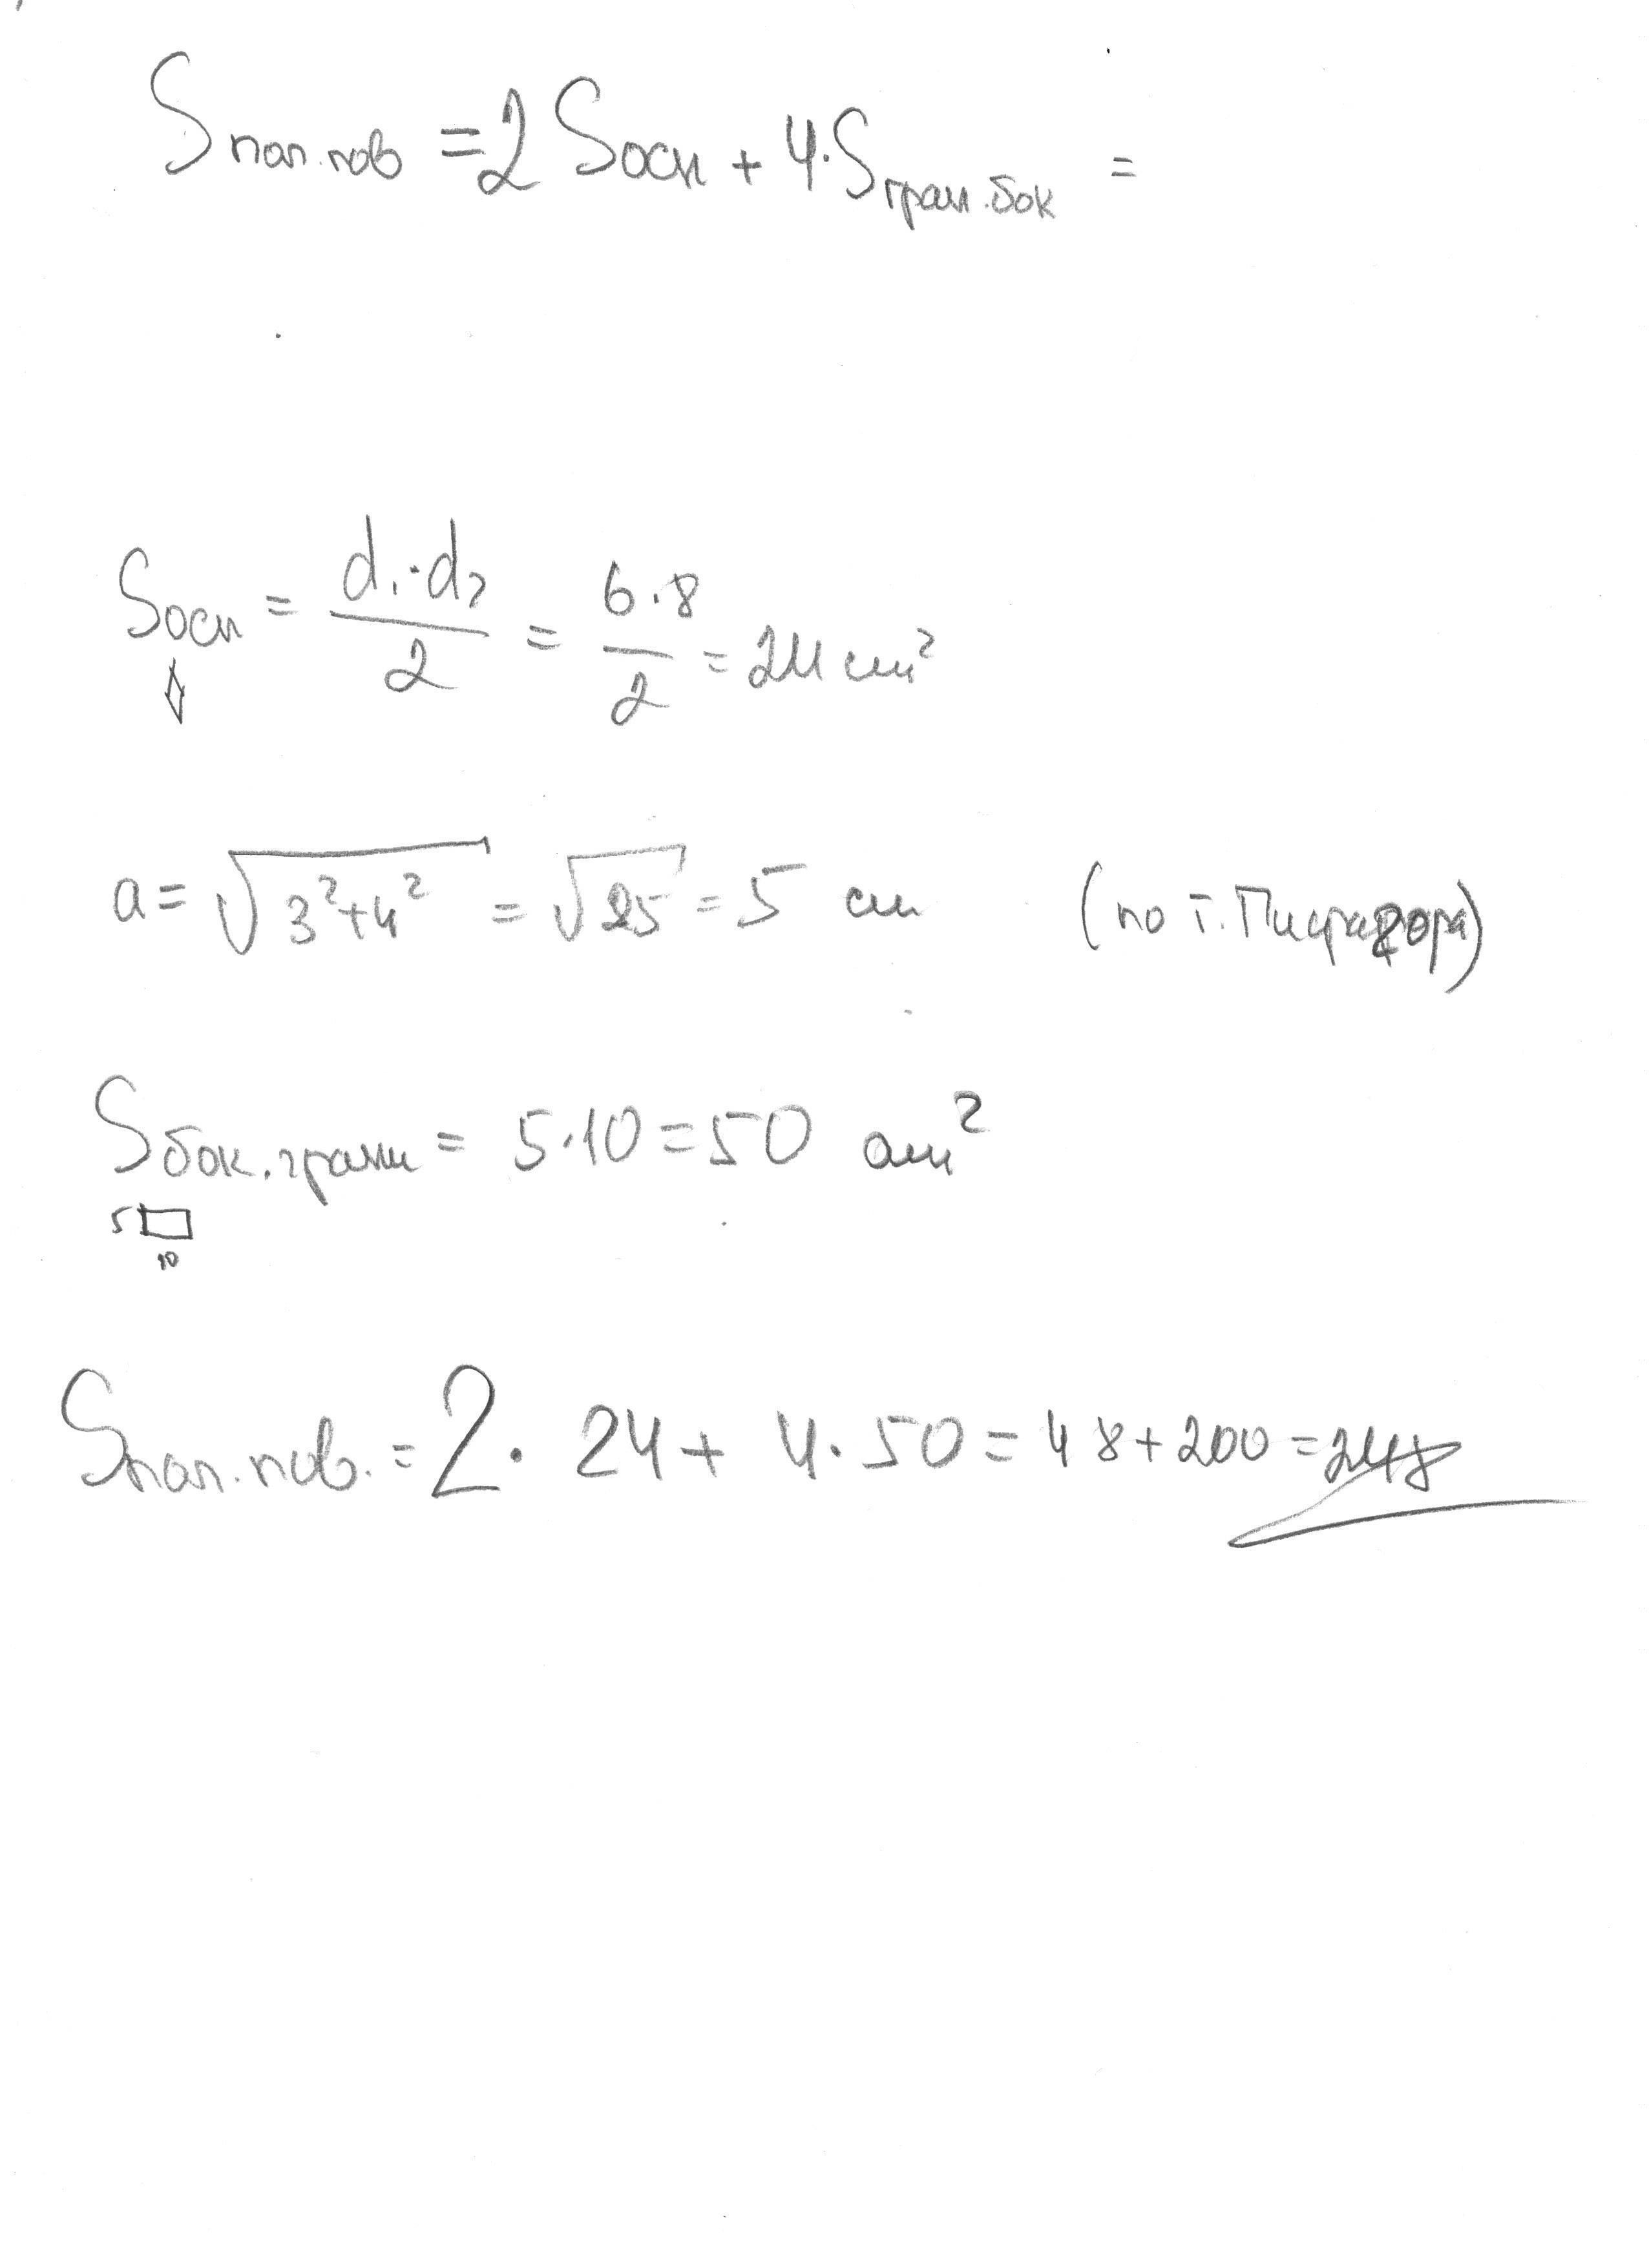 Sпол.пов = 2 Sосн + 4·Sгран.бок =
Sосн = d₁·d₂/2 = 6·8/2 = 24 см²
a = √(3²+4²) = √25 = 5 см (по т. Пифагора)
Sбок.грани = 5·10 = 50 см²
5
10
Sпол.пов. = 2 · 24 + 4·50 = 48 + 200 = 248